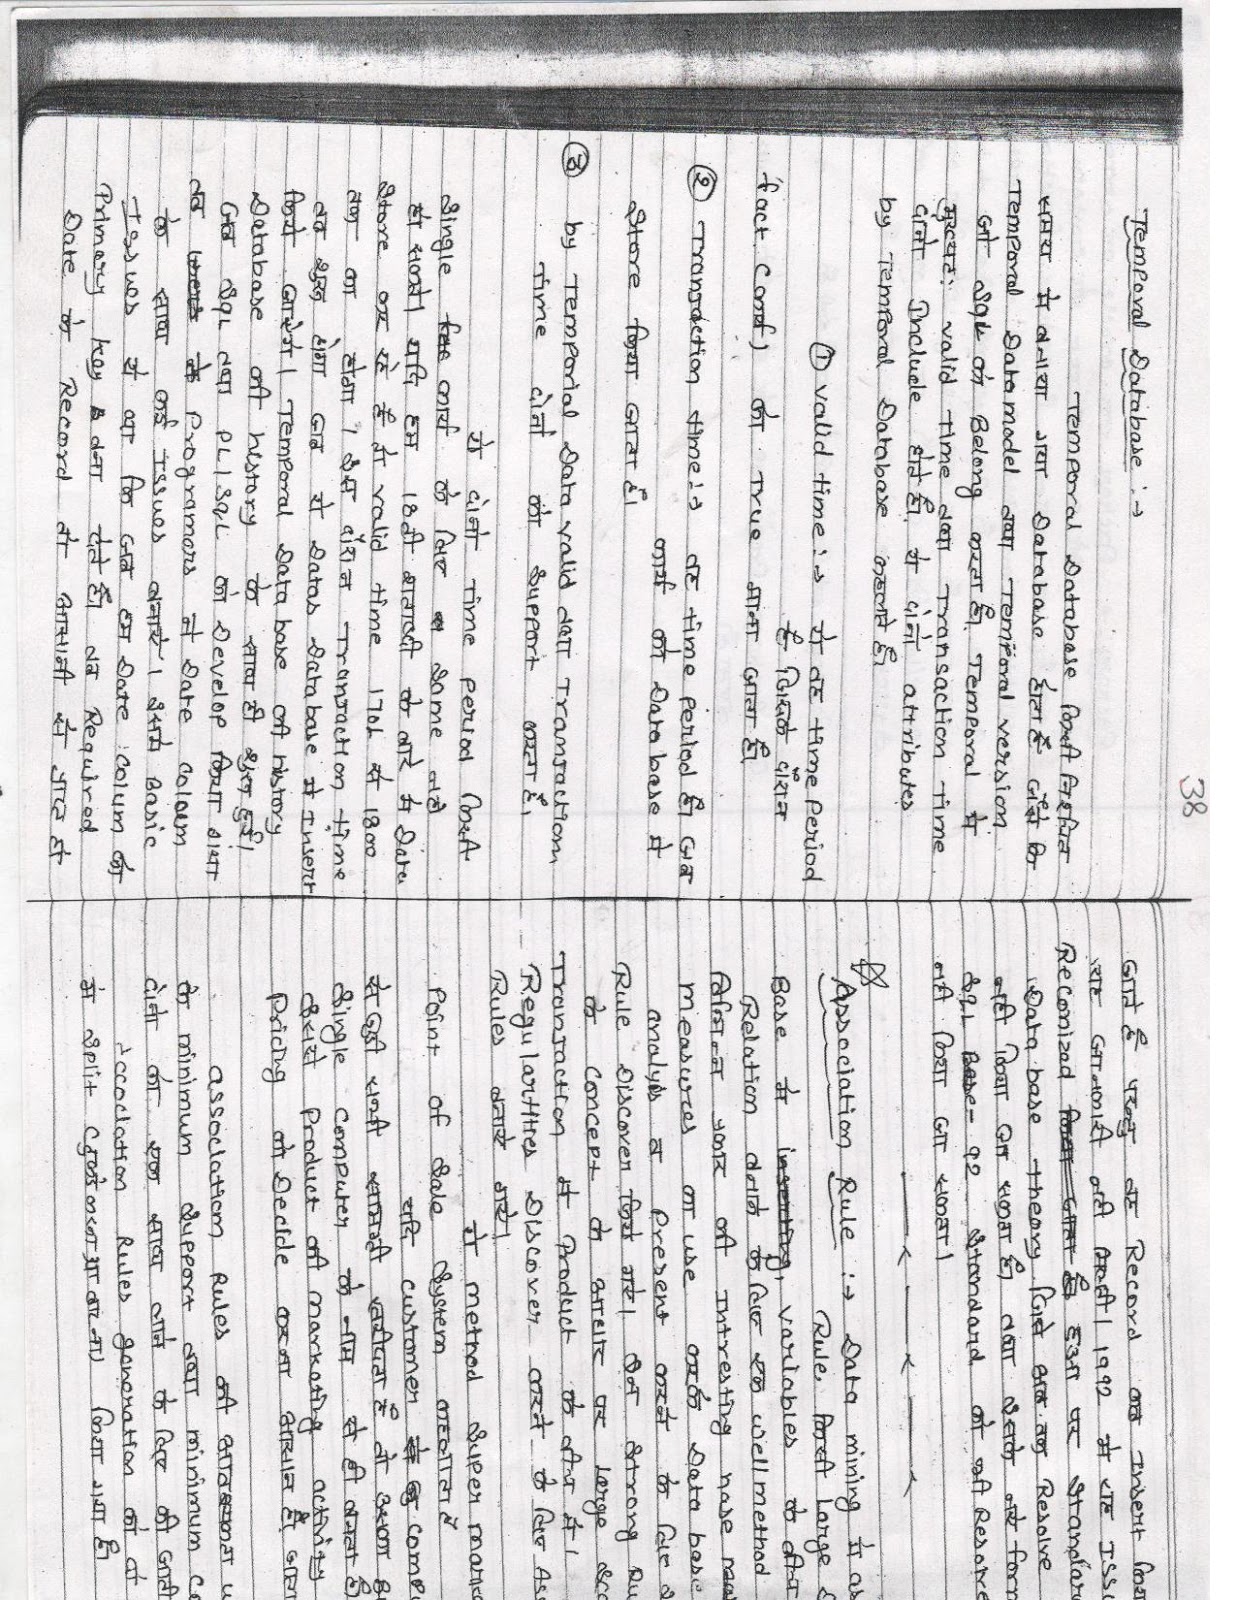 38
Temporal Database :→
Temporal Database किसी निश्चित
समय मे बनाया गया Database होता है जैसे कि
Temporal Data model तथा Temporal version
जो SQL को Belong करता है। Temporal मे
मुख्यतः valid time तथा Transaction time
दोनो Include होते है। ये दोनो attributes
by Temporal Database कहलाते है।
① valid time :→ ये वह time period
है जिसके दौरान
fact (कार्य) को True माना जाता है।
② Transaction time :→ वह time period है। जब
कार्य को Database मे
Store किया जाता है।
③ by Temporial Data valid तथा Transaction
Time दोनो को Support करता है।
ये दोनो Time period किसी
Single कार्य के लिए Same नही
हो सकते। यदि हम 18वी शताब्दी के बारे मे Data
Store कर रहे है तो valid time 1701 से 1800
तक का होगा। इस दौरान Transaction time
तब शुरू होगा जब ये Datas Database मे Insert
किये जायेगे। Temporal Data base की history
Database की history के साथ ही शुरू हुई।
जब SQL तथा PL/SQL को Develop किया गया
तब Programers ने Date Coloum
के साथ कई Issues बनाये। इसमे Basic
Issues ये था कि जब हम Date Colum को
Primary key बना देते है। तब Required
Date के Record तो आसानी से प्राप्त हो
जाते है परन्तु वह Record कब Insert किया
यह जानकारी नही मिलती। 1992 मे यह Issu
Recomized हुआ पर Standar
Data base theory जिसे अब तक Resolve
नही किया जा सकता है। तथा इसके नये form
SQL - 92 Standard को भी Resolve
नही किया जा सकता।
Association Rule :→ Data mining मे as
Rule, किसी Large D
Base मे variables के बीच
Relation बनाने के लिए एक well method
विभिन्न प्रकार की Intresting
measures का use करके Data base
analysis व present करने के लिए
Rule Discover किये गये। इन Strong Ru
के Concept के आधार पर Large
Transaction मे Product के बीच मे।
Regularties Discover करने के लिए Ass
Rules बनाये गये।
ये method Super mark
Point of Sale System कहलाता है
यदि customer
Single Computer के नाम से ही
इससे Product की marketing activity
Pricing को Decide करना आसान है।
association Rules की आवश्यकता
के minimum Support तथा minimum Co
दोनो को एक साथ लाने के लिए की जाती
Assocation Rules generation को दो
मे split किया गया है।